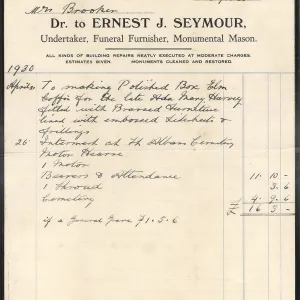 Mrs Brooker
Dr. to ERNEST J. SEYMOUR,
Undertaker, Funeral Furnisher, Monumental Mason.
ALL KINDS OF BUILDING REPAIRS NEATLY EXECUTED AT MODERATE CHARGES.
ESTIMATES GIVEN. MONUMENTS CLEANED AND RESTORED.
1930
To making Polished Box Elm
Coffin for the late Ada Mary Harvey
fitted with Brassed Furniture
lined with embossed sidesheets &
frillings
26 Interment at St Albans Cemetery
Motor Hearse
1 Motor
Bearers & Attendance 11 - 10 -
1 Shroud
Cemetery 4. 9. 6
£ 16 3 -
if a General Grave £1. 5. 6